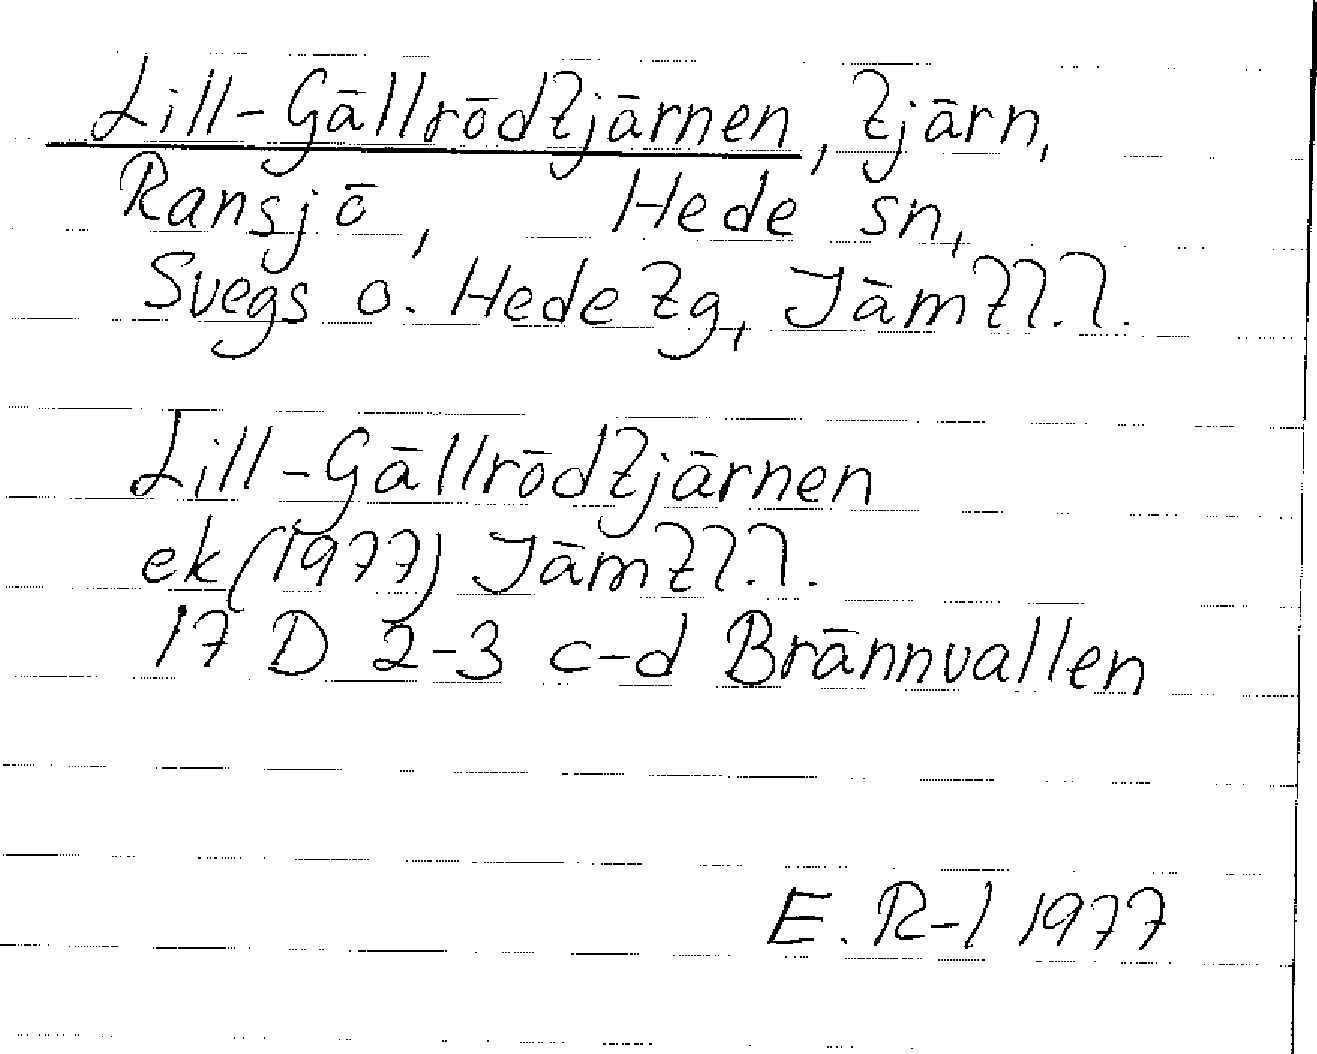 Lill-Gällrödtjärnen, tjärn,
Ransjö, Hede sn,
Svegs o. Hede tg, Jämtl.l.
Lill-Gällrödtjärnen
ek (1977) Jämtl.l.
17 D 2-3 c-d Brännvallen
E. R-l 1977